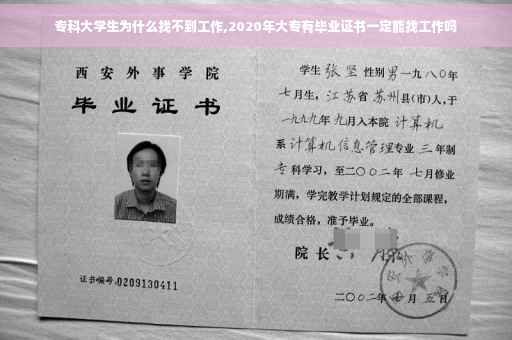 专科大学生为什么找不到工作,2020年大专有毕业证书一定能找工作吗
西安外事学院
毕业证书
证书编号:0209130411
学生 张坚 性别男一九八〇年
七月生,江苏省 苏州县(市)人,于
一九九九年 九月入本院 计算机
系计算机信息管理专业 三 年制
专科学习,至二〇〇二年 七月修业
期满,学完教学计划规定的全部课程,
成绩合格,准予毕业。
院长
二〇〇二年 月 五日